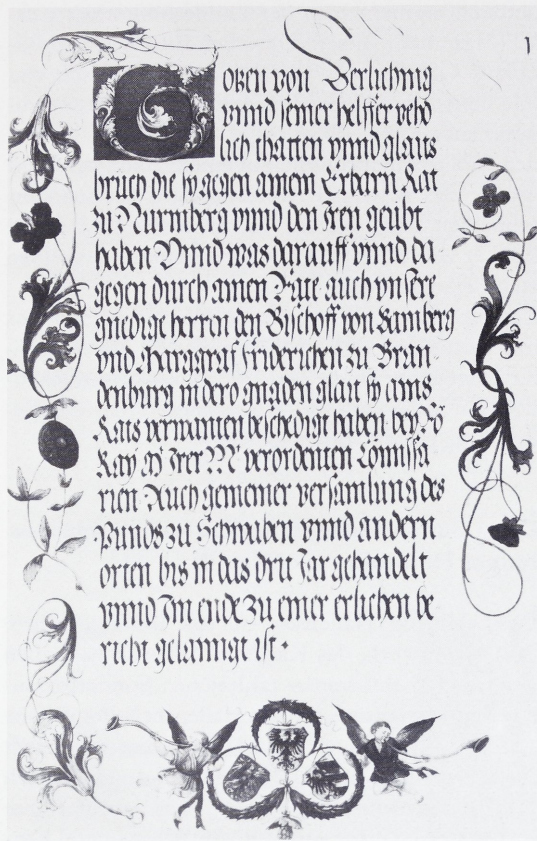 1
Gotzen von Berlichnig
vnnd seiner helffer vehd
lich thatten vnnd glaits
bruch die sy gegen ainem Erbarn Rat
zu Nurmberg vnnd den Iren geübt
haben Vnnd was darauff vnnd da
gegen durch ainen Rate auch vnsere
gnedige herren den Bischoff von Bamberg
vnd Marggraf friderichen zu Bran
denburg in dero gnaden glait sy ains
Rats verwanten beschedigt haben bey Rö
Kay Mt Irer Mt verordenten Comissa
rien Auch gemainer versamlung des
Punds zu Schwaben vnnd andern
orten bis in das drit Jar gehandelt
vnnd Im ende zu einer erlichen be
richt gelanngt ist ·